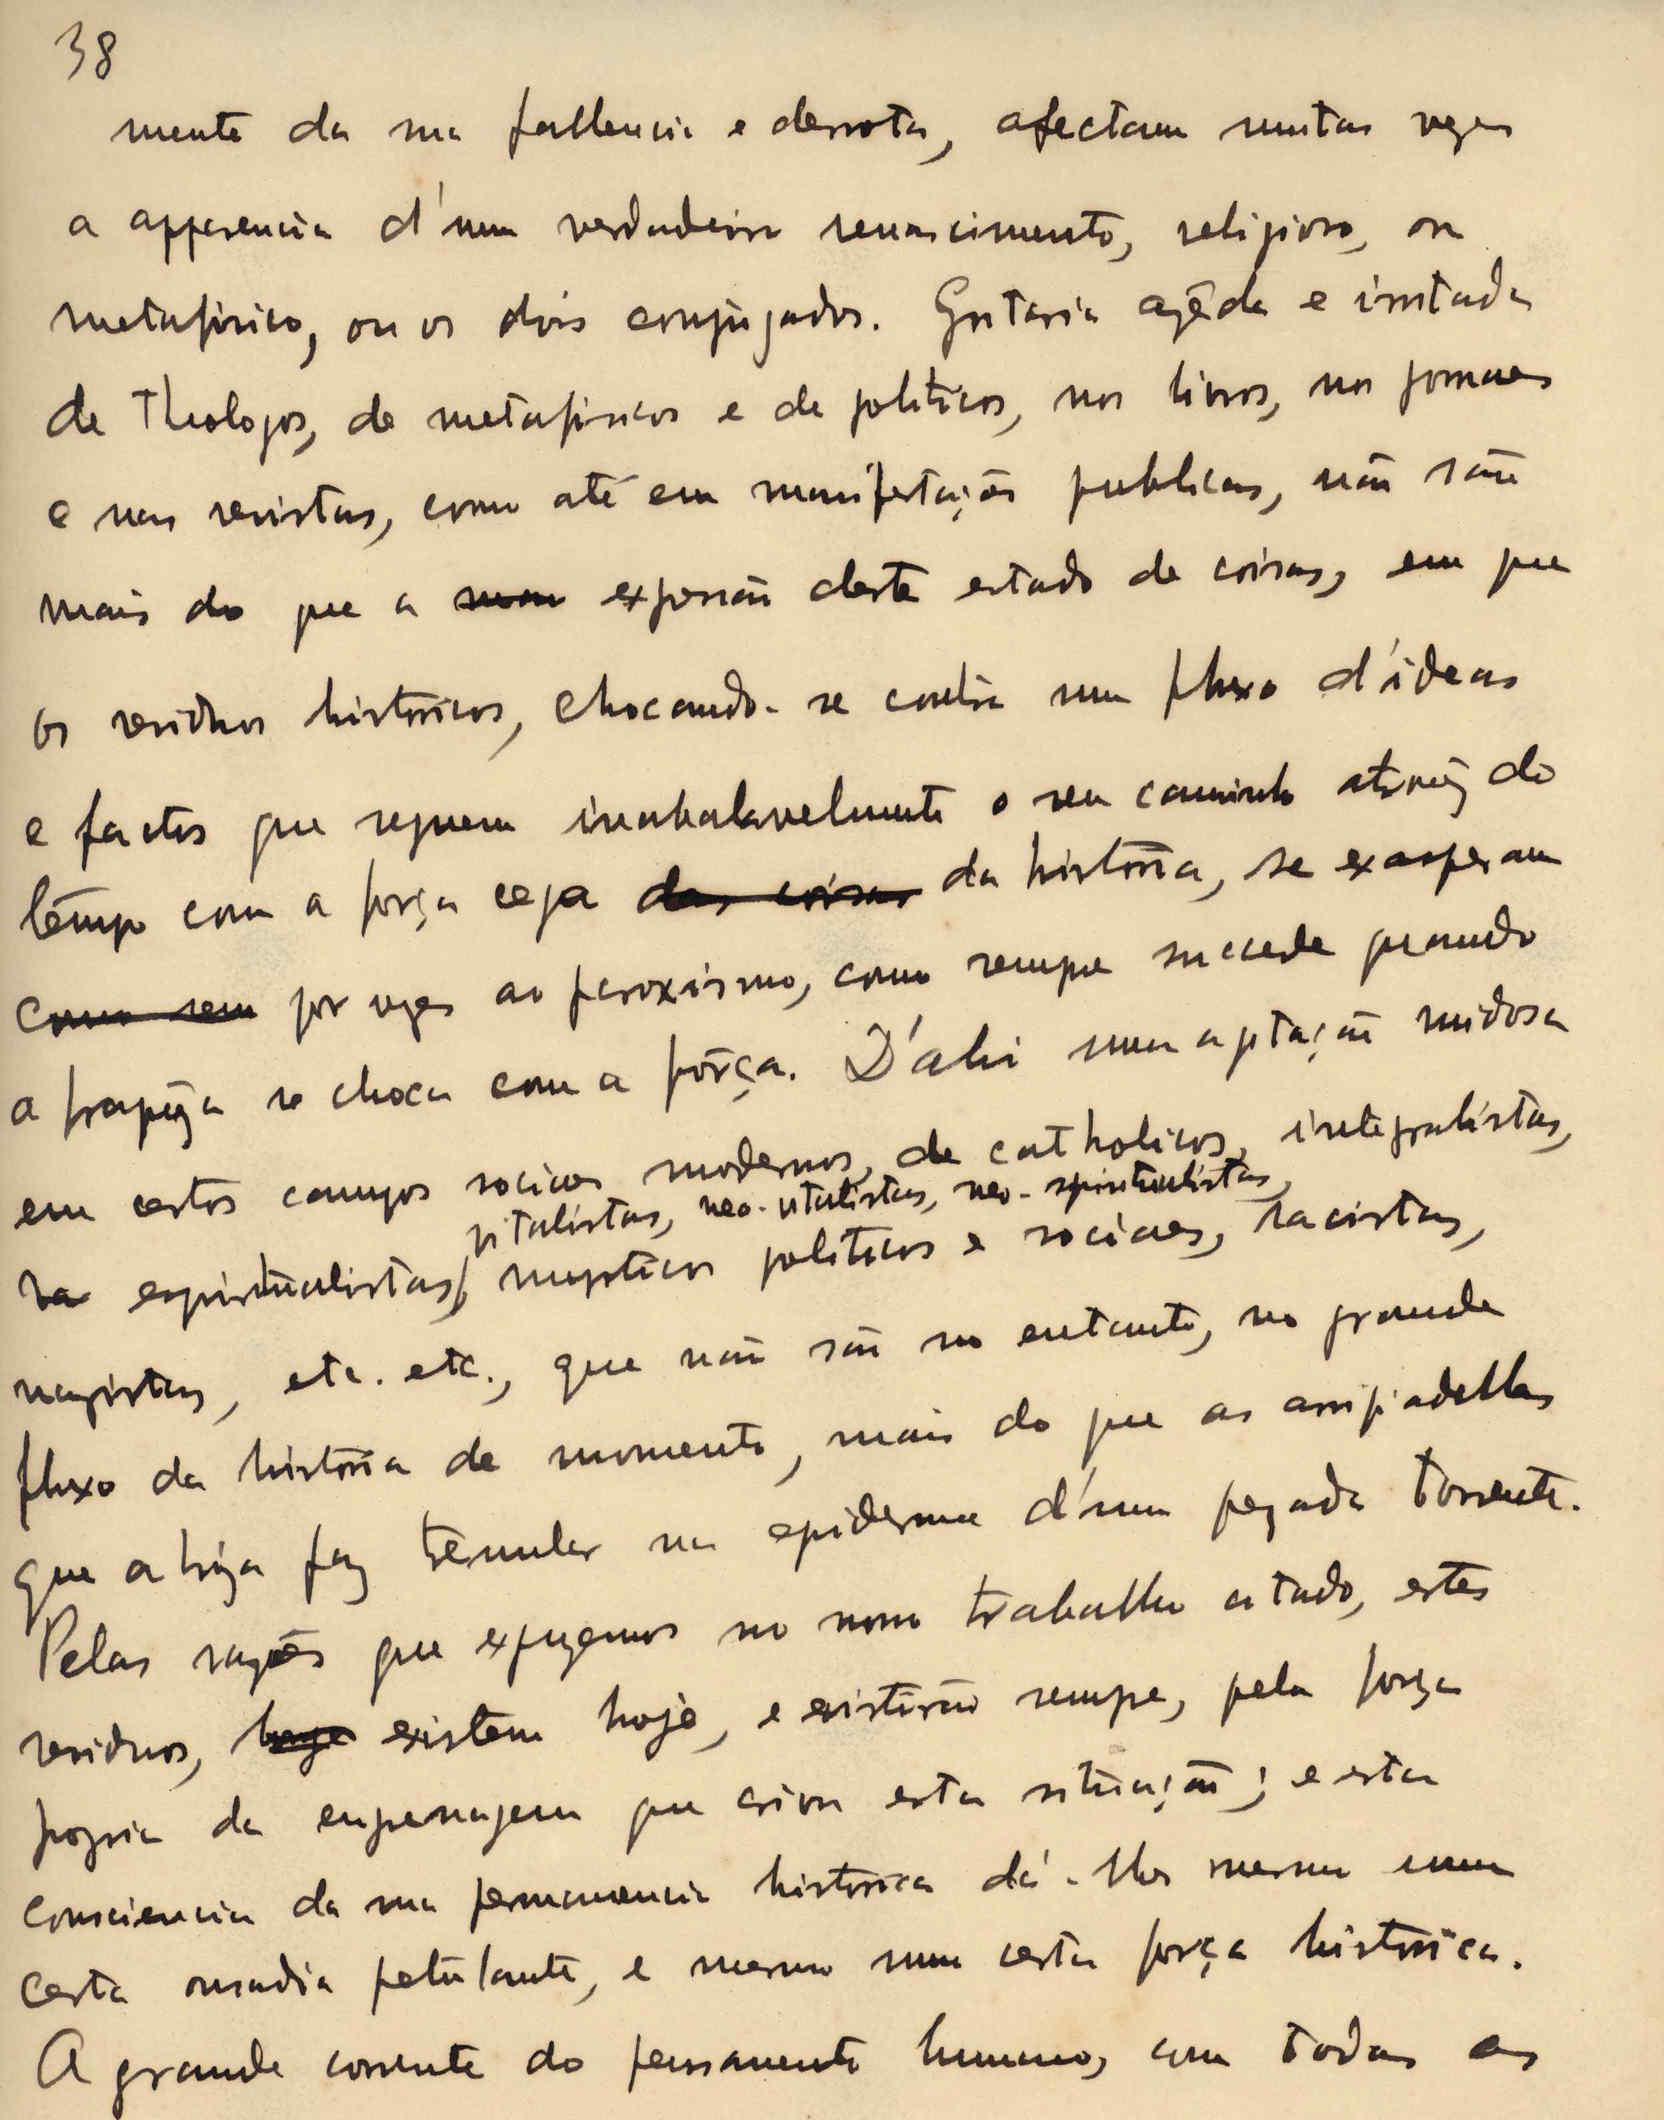 38
mente da sua fallencia e derrota, afectam muitas vezes
a apparencia d'um verdadeiro renascimento, religioso, ou
metafisico, ou os dois conjugados. Gritaria azêda e irritada
de Theologos, de metafisicos e de politicos, nos livros, nos jornaes
e nas revistas, como até em manifestações publicas, não são
mais do que a expressão deste estado de coisas, em que
os residuos historicos, chocando-se contra um fluxo d'ideas
e factos que seguem inabalavelmente o seu caminho atravez do
tempo com a força cega das coisas da história, se exasperam
como sem por vezes ao paroxismo, como sempre succede quando
a fraqueza se choca com a força. D'ahi uma agitação ruidosa
em certos campos sociaes modernos, de catholicos, integralistas,
vitalistas, neo-vitalistas, neo-spiritualistas,
ra espiritualistas, mysticos politicos e sociaes, racistas,
nazistas, etc. etc., que não são no entanto, no grande
fluxo da história de momento, mais do que as arripiadellas
que a briza faz tremular na epiderme d'uma pezada torrente.
Pelas razões que expuzemos no nosso trabalho citado, estes
residuos, hoje existem hoje, e existirão sempre, pela força
propria da engrenagem que criou esta situação; e esta
consciencia da sua permanencia historica dá-lhes mesmo uma
certa ousadia petulante, e mesmo uma certa força historica.
A grande corrente do pensamento humano, com todas as